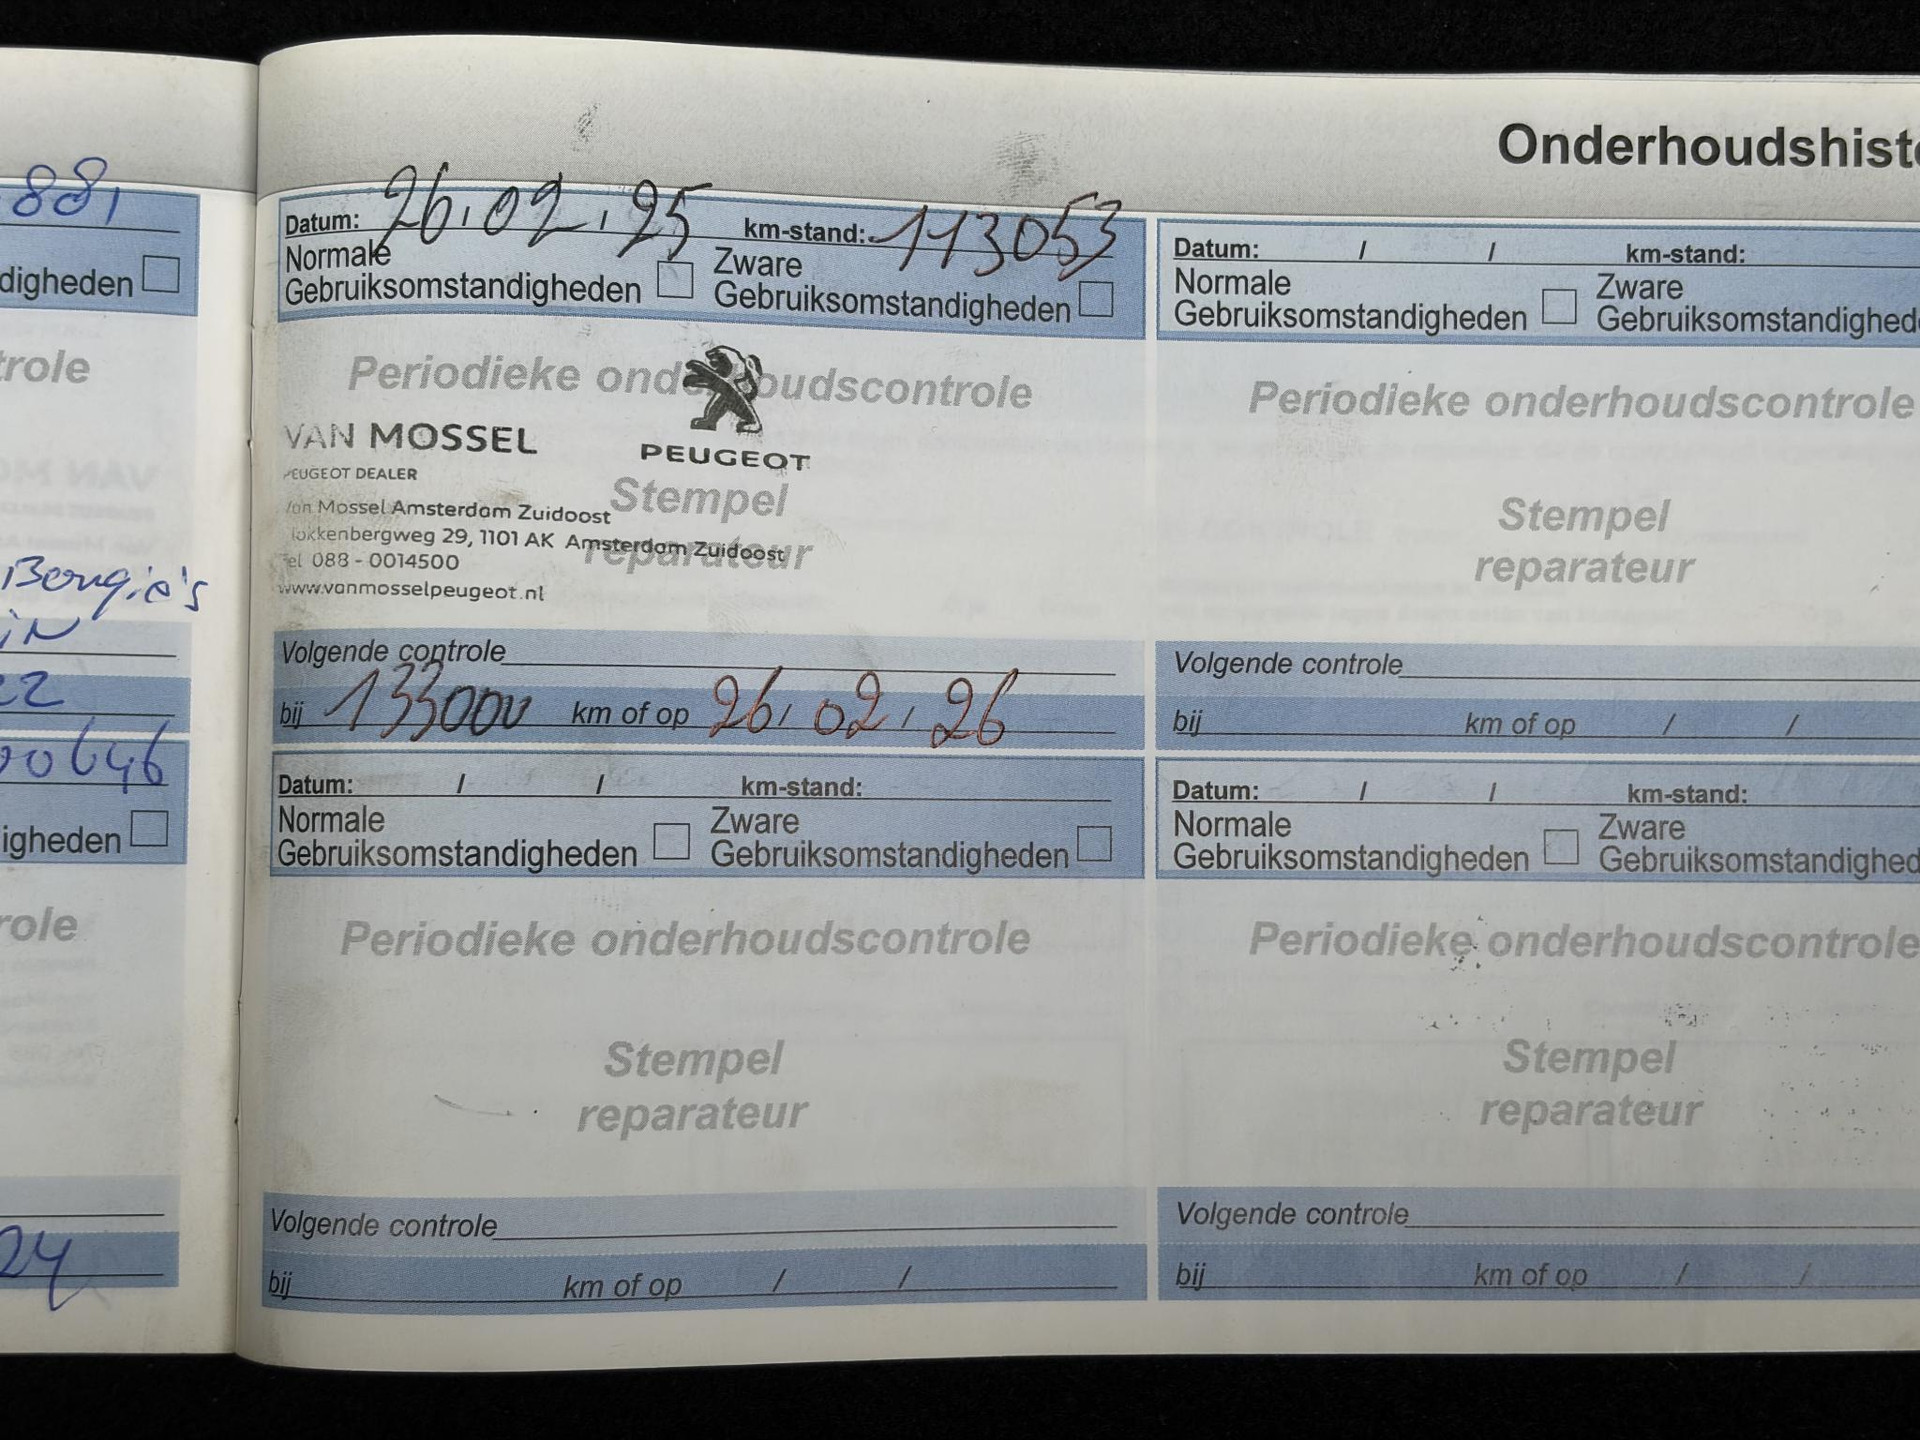 881
digheden
role
Bougie's
22
00646
igheden
role
24
Onderhoudshist
Datum: 26/02/25 km-stand: 113053
Normale Gebruiksomstandigheden
Zware Gebruiksomstandigheden
Periodieke onderhoudscontrole
PEUGEOT
VAN MOSSEL
PEUGEOT DEALER
Stempel
reparateur
Van Mossel Amsterdam Zuidoost
Klokkenbergweg 29, 1101 AK Amsterdam Zuidoost
Tel 088 - 0014500
www.vanmosselpeugeot.nl
Volgende controle
bij 133000 km of op 26/02/26
Datum: / / km-stand:
Normale Gebruiksomstandigheden
Zware Gebruiksomstandighed
Periodieke onderhoudscontrole
Stempel
reparateur
Volgende controle
bij km of op / /
Datum: / / km-stand:
Normale Gebruiksomstandigheden
Zware Gebruiksomstandigheden
Periodieke onderhoudscontrole
Stempel
reparateur
Volgende controle
bij km of op / /
Datum: / / km-stand:
Normale Gebruiksomstandigheden
Zware Gebruiksomstandighed
Periodieke onderhoudscontrole
Stempel
reparateur
Volgende controle
bij km of op / /